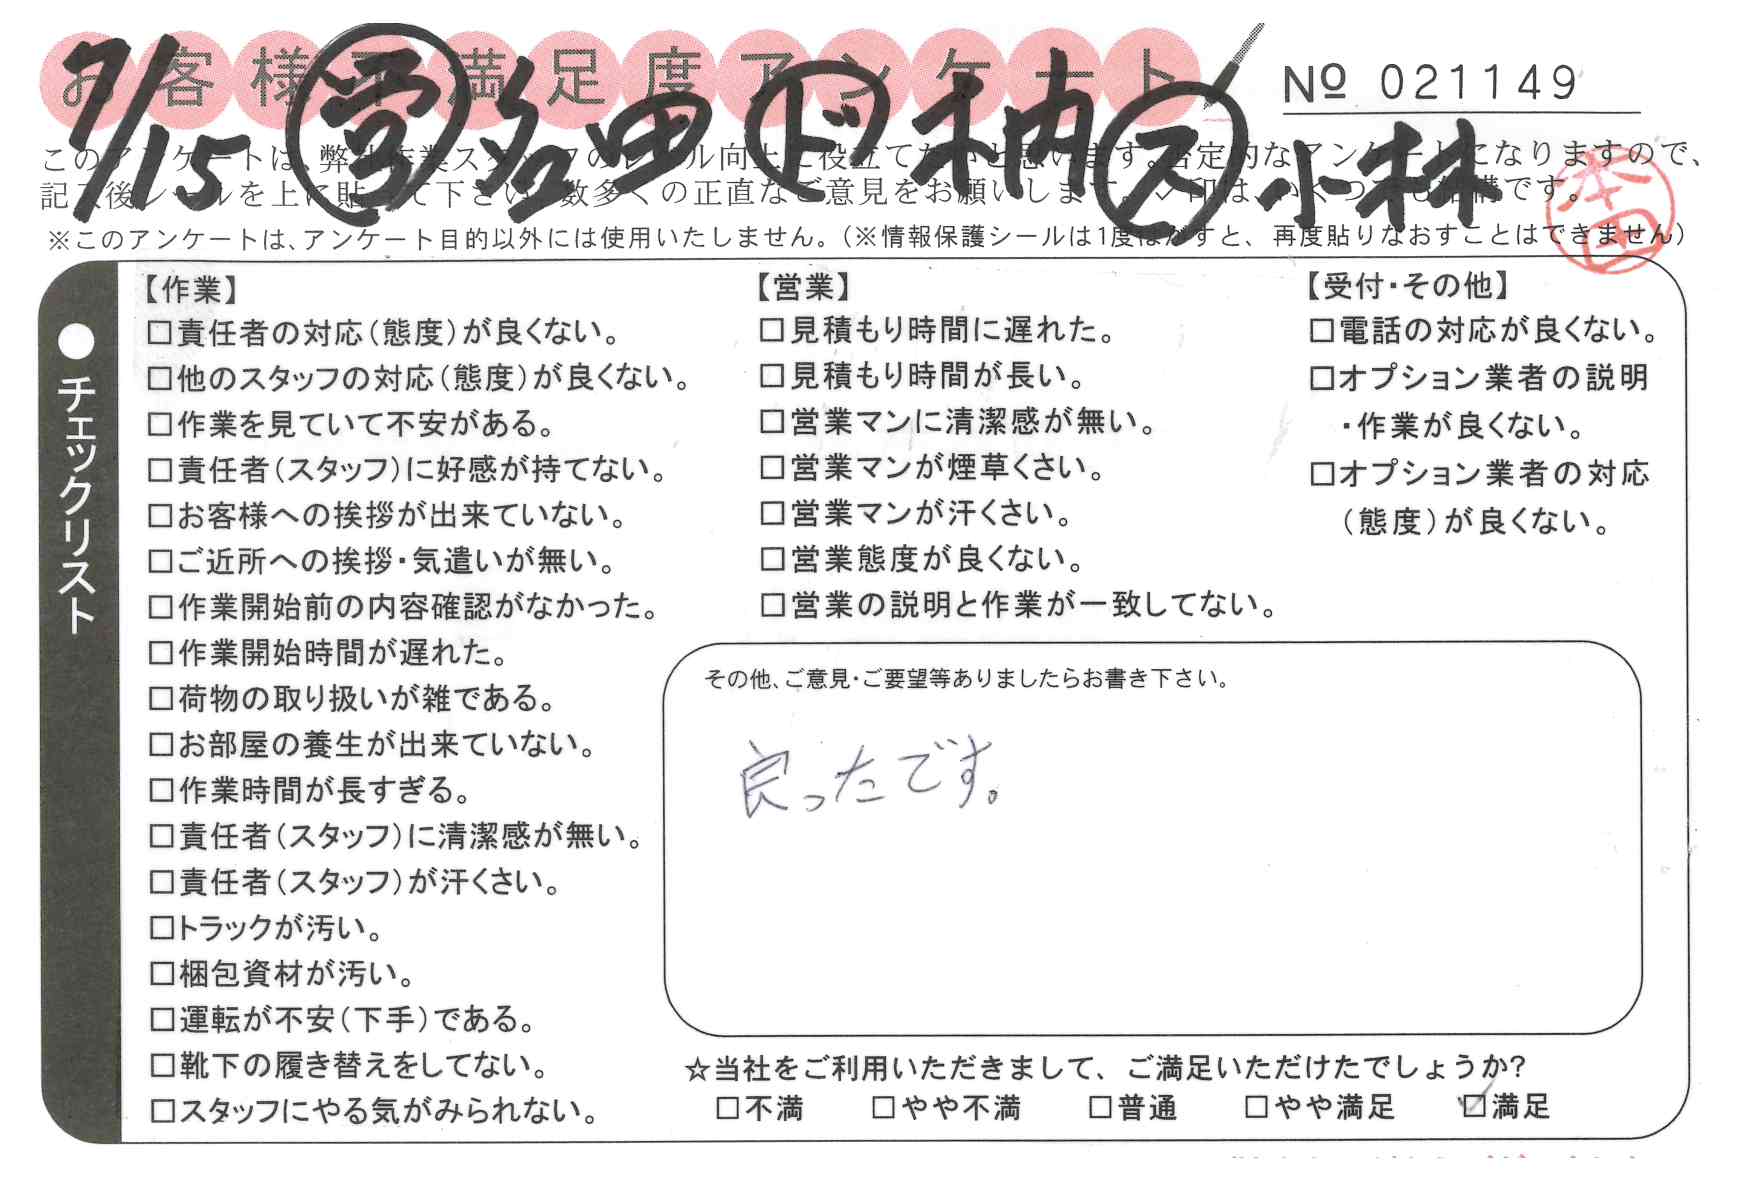 お客様不満足度アンケート
7/15 営 岩田 ド 植 ス 小林
№ 021149
このアンケートは、弊社作業スタッフのレベル向上に役立てたいと思います。否定的なアンケートになりますので、
記入後シールを上に貼って下さい。数多くの正直なご意見をお願いします。✓印は、いくつでも結構です。
本田
※このアンケートは、アンケート目的以外には使用いたしません。(※情報保護シールは1度はがすと、再度貼りなおすことはできません)
●チェックリスト
【作業】
□責任者の対応(態度)が良くない。
□他のスタッフの対応(態度)が良くない。
□作業を見ていて不安がある。
□責任者(スタッフ)に好感が持てない。
□お客様への挨拶が出来ていない。
□ご近所への挨拶・気遣いが無い。
□作業開始前の内容確認がなかった。
□作業開始時間が遅れた。
□荷物の取り扱いが雑である。
□お部屋の養生が出来ていない。
□作業時間が長すぎる。
□責任者(スタッフ)に清潔感が無い。
□責任者(スタッフ)が汗くさい。
□トラックが汚い。
□梱包資材が汚い。
□運転が不安(下手)である。
□靴下の履き替えをしてない。
□スタッフにやる気がみられない。
【営業】
□見積もり時間に遅れた。
□見積もり時間が長い。
□営業マンに清潔感が無い。
□営業マンが煙草くさい。
□営業マンが汗くさい。
□営業態度が良くない。
□営業の説明と作業が一致してない。
【受付・その他】
□電話の対応が良くない。
□オプション業者の説明
・作業が良くない。
□オプション業者の対応
(態度)が良くない。
その他、ご意見・ご要望等ありましたらお書き下さい。
良ったです。
☆当社をご利用いただきまして、ご満足いただけたでしょうか?
□不満 □やや不満 □普通 □やや満足 ☑満足